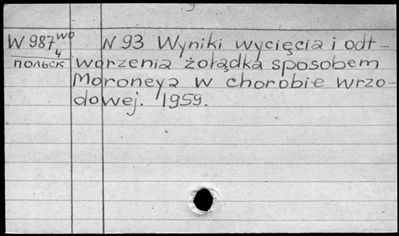 W 987 wo
4
ПОЛЬСК
N 93 Wyniki wycięcia i odt-
worzenia żołądka sposobem
Moroneya w chorobie wrzo-
dowej. 1959.